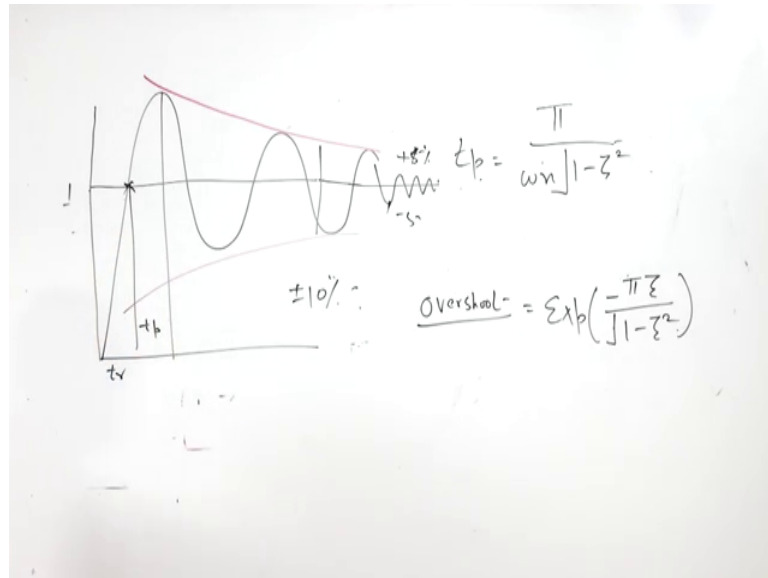 1
+5%
-5-
t_p = π / ωn√1-ζ²
±10%
Overshoot- = Exp(-πξ / √1-ξ²)
tp
tr